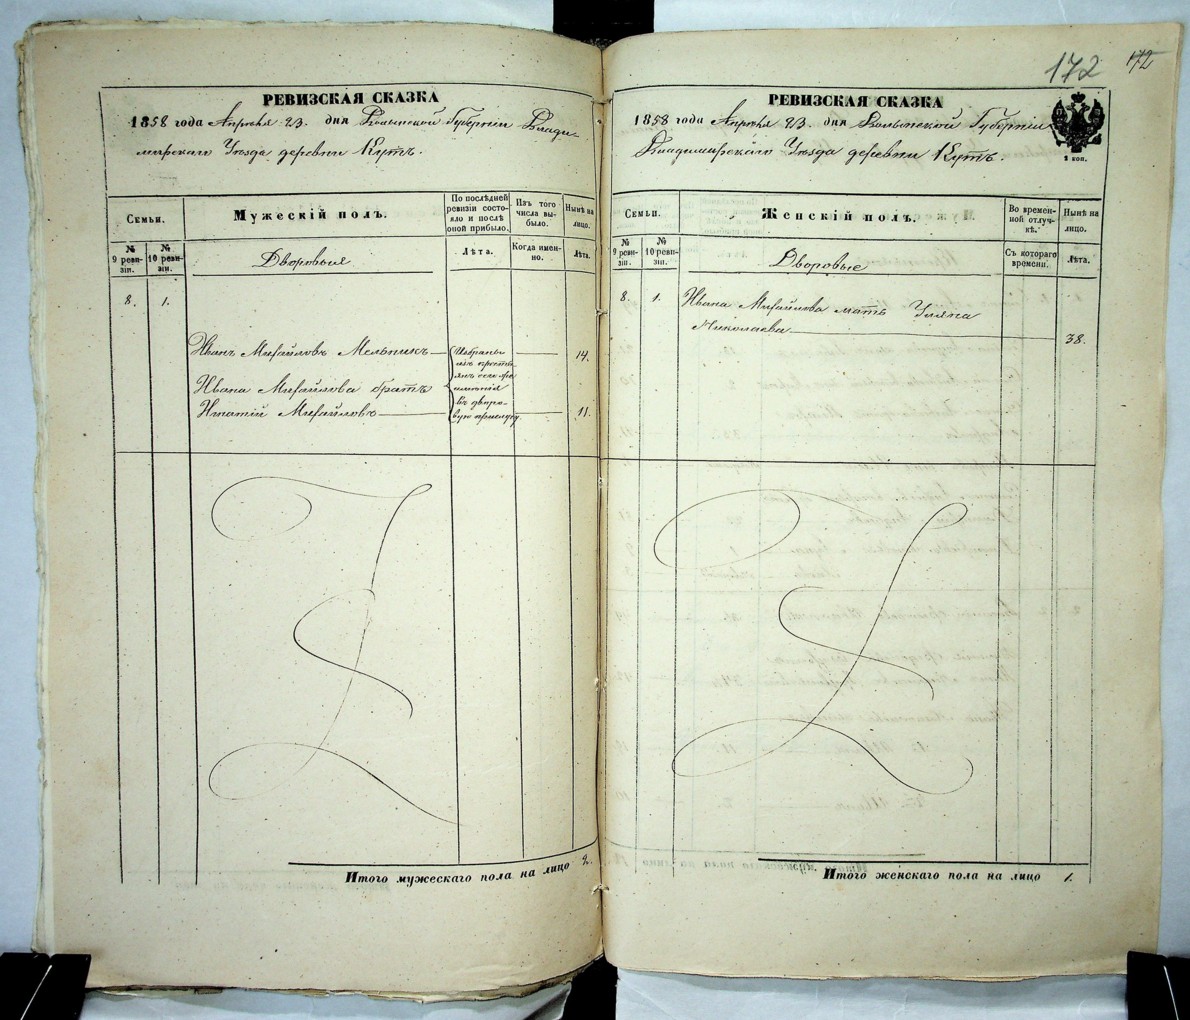 172 172
РЕВИЗСКАЯ СКАЗКА
1858 года Апрѣля 23. дня Волынской Губерніи Влади-
мирскаго Уѣзда деревни Кутъ.
Семьи.
Мужескій полъ.
По послѣдней
ревизіи состо-
яло и послѣ
оной прибыло.
Изъ того
числа вы-
было.
Нынѣ на
лицо.
№
9 реви-
зіи.
№
10 реви-
зіи.
Дворовыя
Лѣта.
Когда имен-
но.
Лѣта.
8. 1.
Иванъ Михайловъ Мельникъ 14.
Ивана Михайлова братъ
Игнатій Михайловъ 11.
Избраны
изъ кресть
янъ сего
въ дворо-
вую прислугу
Итого мужескаго пола на лицо 2.
РЕВИЗСКАЯ СКАЗКА
1858 года Апрѣля 23. дня Волынской Губерніи
Владимирскаго Уѣзда деревни Кутъ.
2 коп.
Семьи.
Женскій полъ.
Во времен-
ной отлуч-
кѣ.
Нынѣ на
лицо.
№
9 реви-
зіи.
№
10 реви-
зіи.
Дворовые
Съ котораго
времени.
Лѣта.
8. 1. Ивана Михайлова мать Уляна
Николаева 38.
Итого женскаго пола на лицо 1.